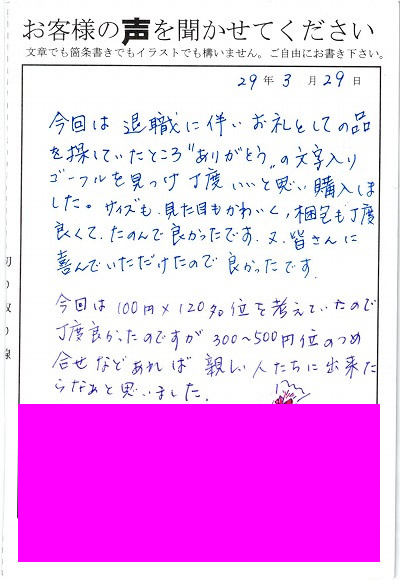 お客様の声を聞かせてください
文章でも箇条書きでもイラストでも構いません。ご自由にお書き下さい。
29年3月29日
今回は退職に伴いお礼としての品
を探していたところ"ありがとう"の文字入り
ゴーフルを見つけ丁度いいと思い購入しま
した。サイズも見た目もかわいく,梱包も丁度
良くて,たのんで良かったです。又,皆さんに
喜んでいただけたので良かったです。
今回は100円×120名位を考えていたので
丁度良かったのですが300〜500円位のつめ
合せなどあれば親しい人たちに出来た
らなぁと思いました.
切り取り線